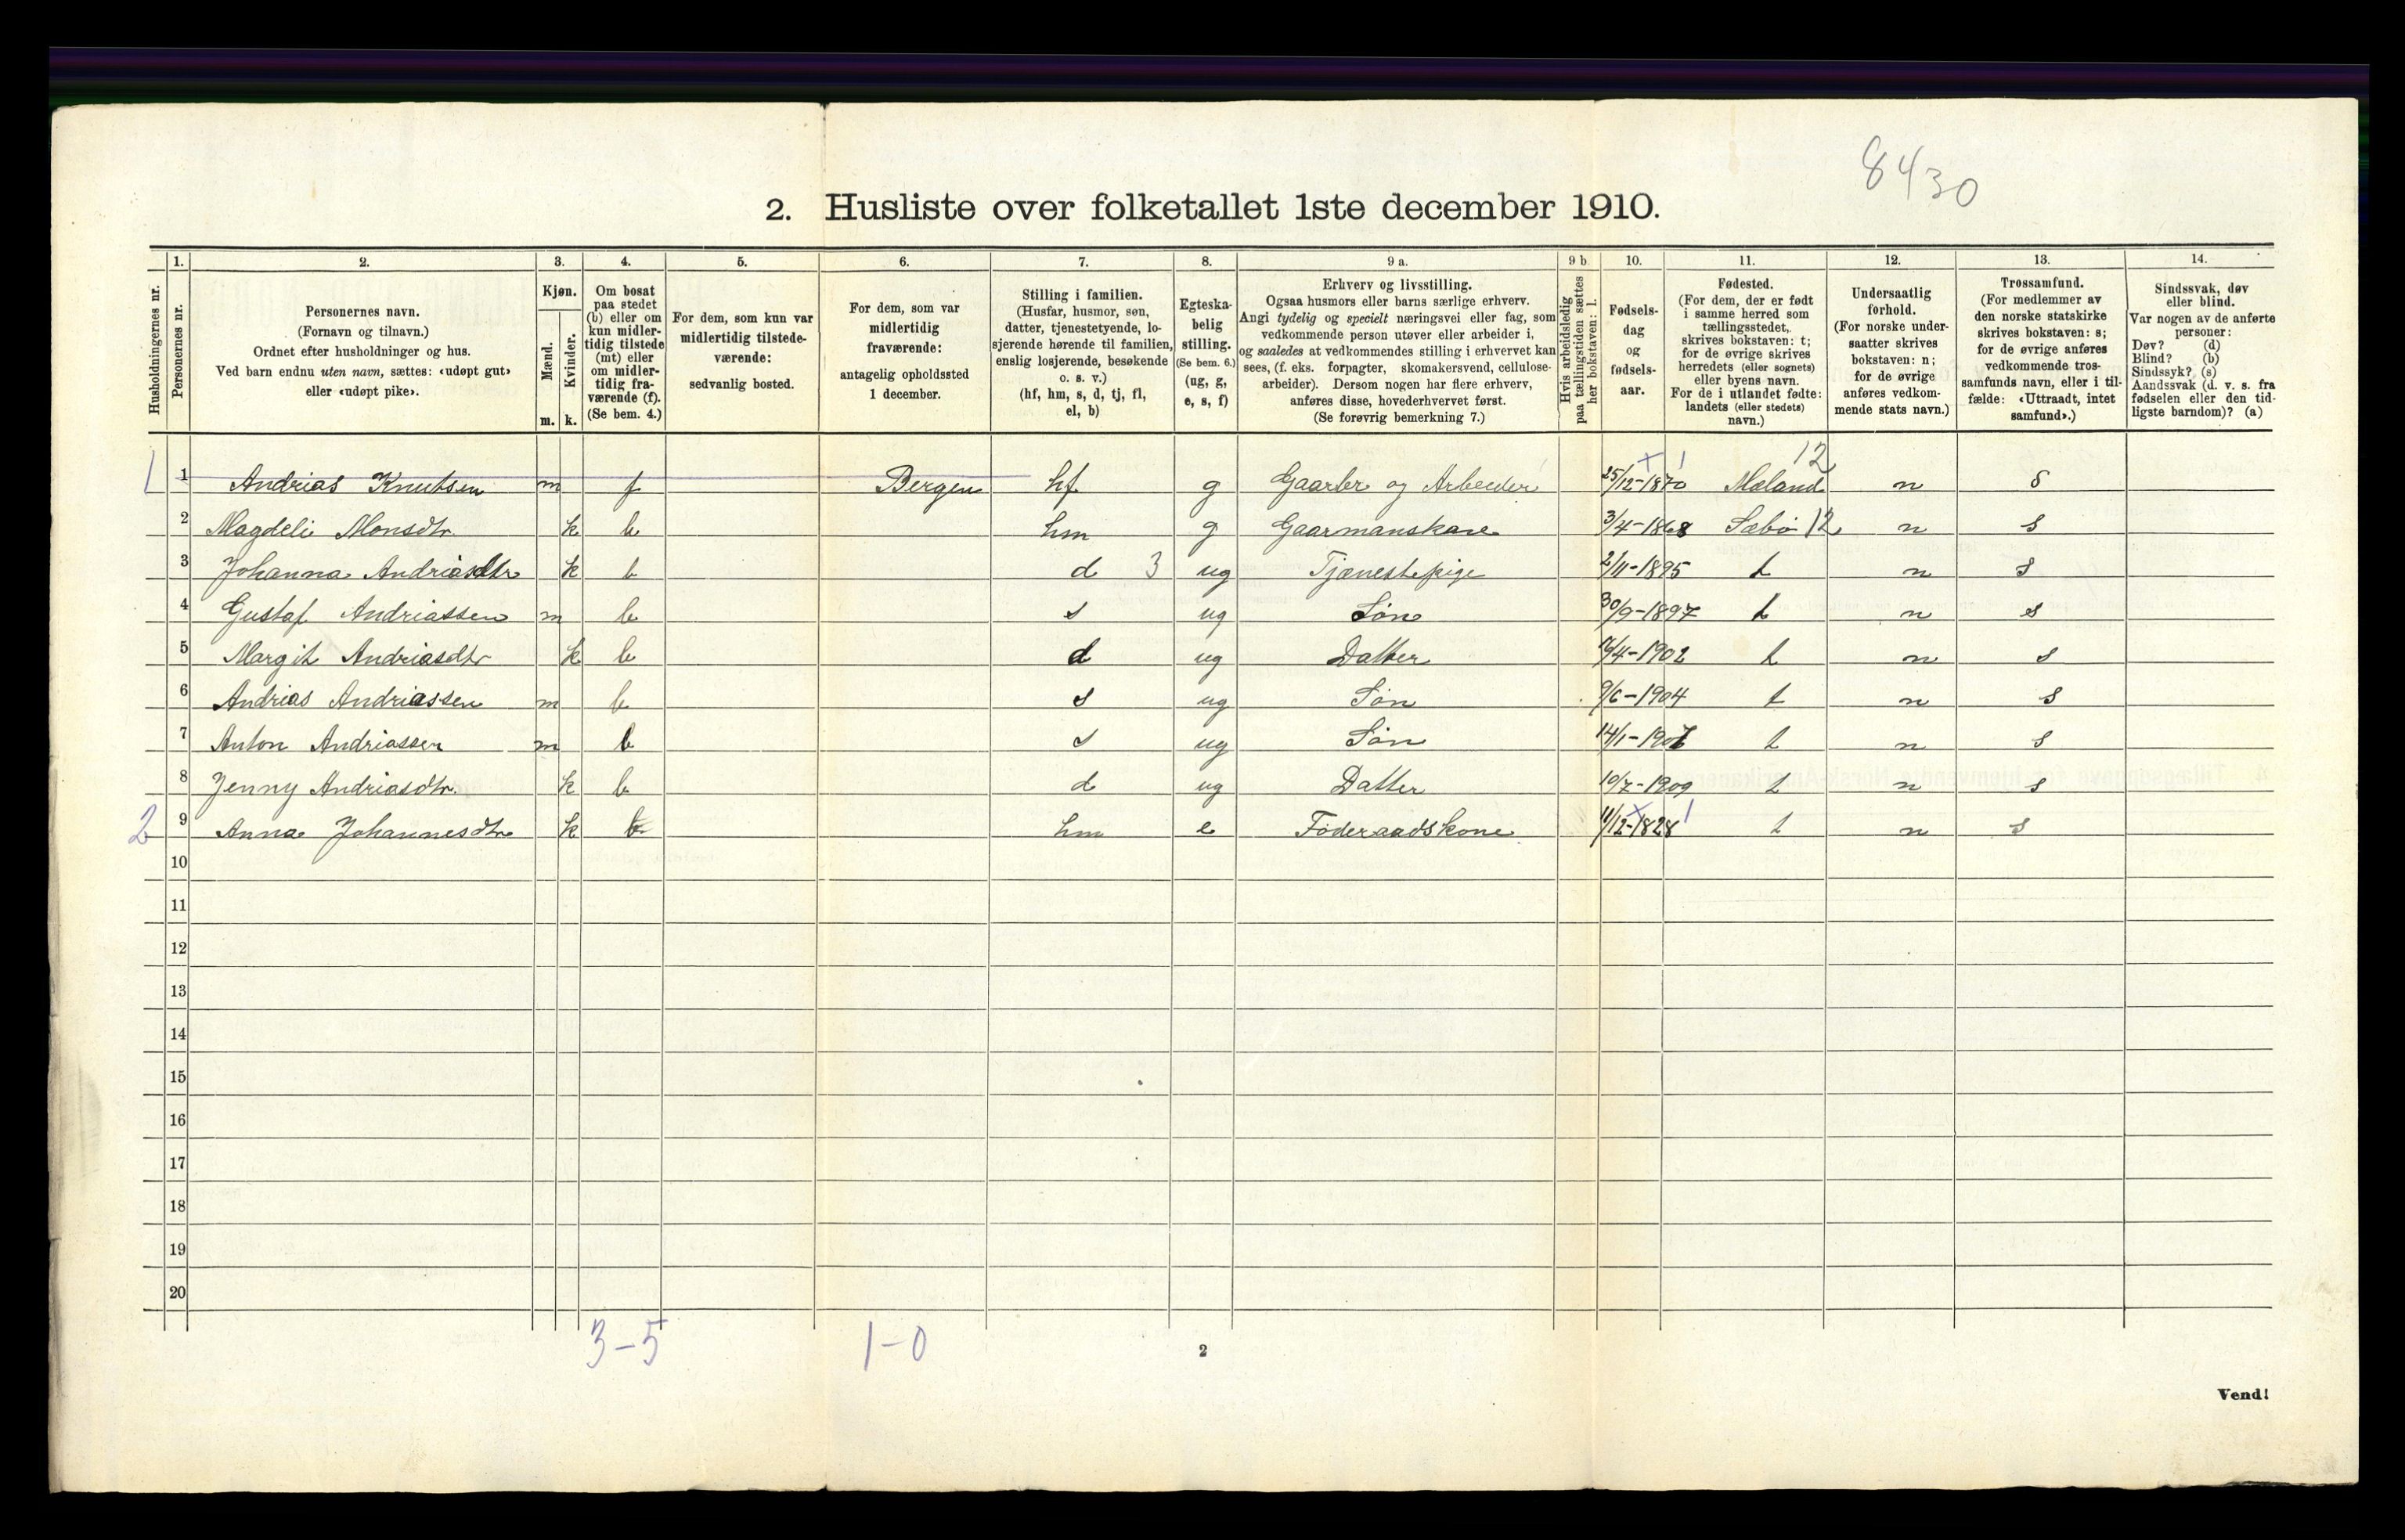 8430
2. Husliste over folketallet 1ste december 1910.
Husholdningernes nr.
1. Personernes nr.
2. Personernes navn.
(Fornavn og tilnavn.)
Ordnet efter husholdninger og hus.
Ved barn endnu uten navn, sættes: «udøpt gut»
eller «udøpt pike».
3. Kjøn.
Mænd. m.
Kvinder. k.
4. Om bosat
paa stedet
(b) eller om
kun midler-
tidig tilstede
(mt) eller
om midler-
tidig fra-
værende (f).
(Se bem. 4.)
5. For dem, som kun var
midlertidig tilstede-
værende:
sedvanlig bosted.
6. For dem, som var
midlertidig
fraværende:
antagelig opholdssted
1 december.
7. Stilling i familien.
(Husfar, husmor, søn,
datter, tjenestetyende, lo-
sjerende hørende til familien,
enslig losjerende, besøkende
o. s. v.)
(hf, hm, s, d, tj, fl,
el, b)
8. Egteska-
belig
stilling.
(Se bem. 6.)
(ug, g,
e, s, f)
9 a. Erhverv og livsstilling.
Ogsaa husmors eller barns særlige erhverv.
Angi tydelig og specielt næringsvei eller fag, som
vedkommende person utøver eller arbeider i,
og saaledes at vedkommendes stilling i erhvervet kan
sees, (f. eks. forpagter, skomakersvend, cellulose-
arbeider). Dersom nogen har flere erhverv,
anføres disse, hovederhvervet først.
(Se forøvrig bemerkning 7.)
9 b Hvis arbeidsledig
paa tællingstiden sættes
her bokstaven: l.
10. Fødsels-
dag
og
fødsels-
aar.
11. Fødested.
(For dem, der er født
i samme herred som
tællingsstedet,
skrives bokstaven: t;
for de øvrige skrives
herredets (eller sognets)
eller byens navn.
For de i utlandet fødte:
landets (eller stedets)
navn.)
12. Undersaatlig
forhold.
(For norske under-
saatter skrives
bokstaven: n;
for de øvrige
anføres vedkom-
mende stats navn.)
13. Trossamfund.
(For medlemmer av
den norske statskirke
skrives bokstaven: s;
for de øvrige anføres
vedkommende tros-
samfunds navn, eller i til-
fælde: «Uttraadt, intet
samfund».)
14. Sindssvak, døv
eller blind.
Var nogen av de anførte
personer:
Døv? (d)
Blind? (b)
Sindssyk? (s)
Aandssvak (d. v. s. fra
fødselen eller den tid-
ligste barndom)? (a)
1 1 Andrias Knutsen m f Bergen hf g Gaarbr og Arbeider 25/12-1870 Mæland 12 n s
2 Magdeli Monsdtr. k b hm g Gaarmanskone 3/4-1868 Sæbø 12 n s
3 Johanna Andriasdtr k b d 3 ug Tjænestepige 2/11-1895 t n s
4 Gustaf Andriassen m b s ug Søn 30/9-1897 t n s
5 Margit Andriasdtr k b d ug Datter 16/4-1902 t n s
6 Andrias Andriassen m b s ug Søn 9/6-1904 t n s
7 Anton Andriassen m b s ug Søn 14/1-1907 t n s
8 Jenny Andriasdtr. k b d ug Datter 10/7-1909 t n s
2 9 Anna Johannesdtr k b hm e Føderaadskone 11/12-1828 t n s
10
11
12
13
14
15
16
17
18
19
20
3-5 1-0
2
Vend!